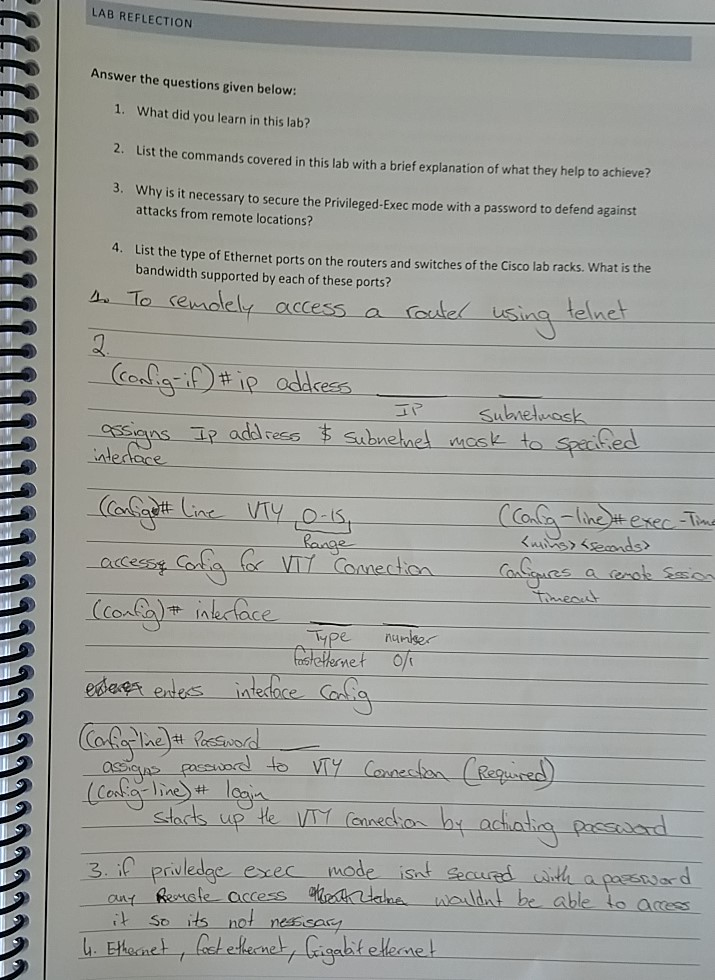 LAB REFLECTION
Answer the questions given below:
1. What did you learn in this lab?
2. List the commands covered in this lab with a brief explanation of what they help to achieve?
3. Why is it necessary to secure the Privileged-Exec mode with a password to defend against
attacks from remote locations?
4. List the type of Ethernet ports on the routers and switches of the Cisco lab racks. What is the
bandwidth supported by each of these ports?
1. To remotely access a router using telnet
2.
(config-if)# ip address ____ ____
IP Subnetmask
assigns Ip address $ subnetnet mask to specified
interface
(config)# Line VTY 0-15 (Config-line)# exec-Time
Range <mins> <seconds>
access Config for VTY Connection Configures a remote Session
Timeout
(config)# interface ____ ____
Type number
fastethernet 0/1
enters interface Config
(Config-line)# Password ____
assigns password to VTY Connection (Required)
(Config-line)# login
Starts up the VTY Connection by activating password
3. if priviledge exec mode isnt secured with a password
any Remote access wouldnt be able to access
it so its not nessisary
4. Ethernet, fast ethernet, Gigabit ethernet